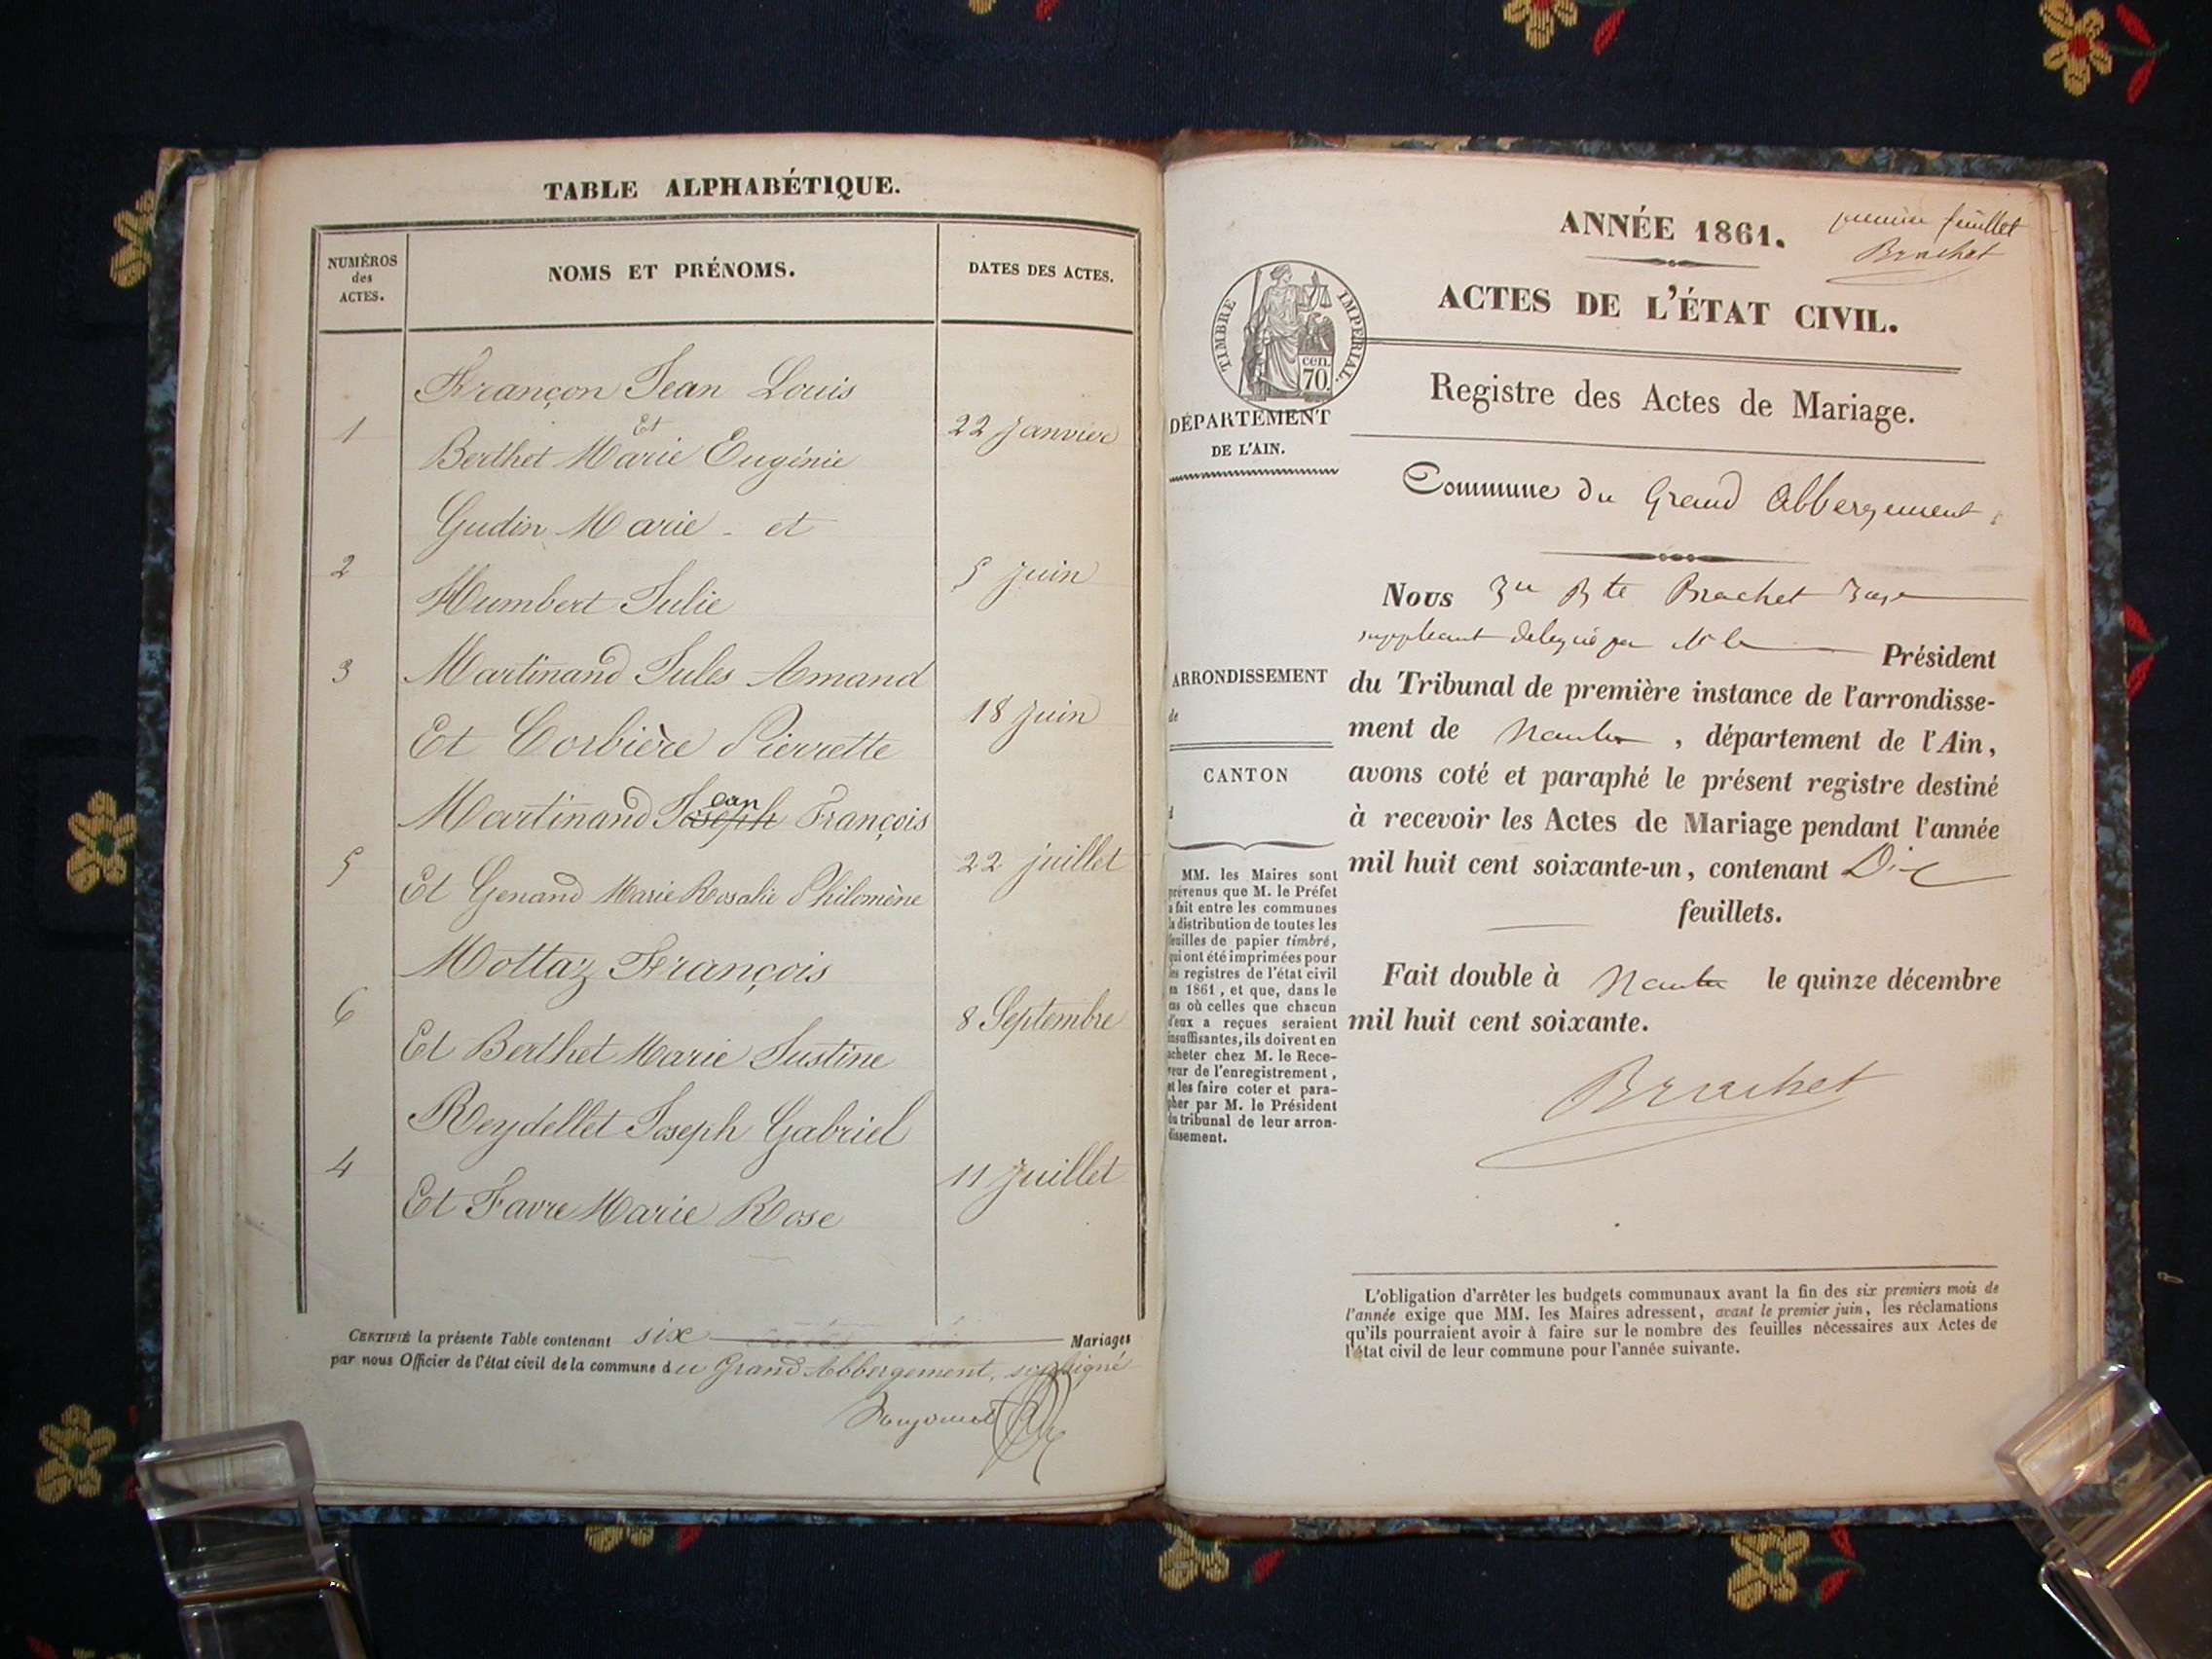 TABLE ALPHABÉTIQUE.
NUMÉROS
des
ACTES.
NOMS ET PRÉNOMS.
DATES DES ACTES.
Françon Jean Louis
Et
1
22 Janvier
Berthet Marie Eugénie
Gudin Marie - et
2
5 Juin
Humbert Julie
3
Martinand Jules Amand
18 Juin
Et Corbière Pierrette
ean
Martinand Joseph François
5
22 juillet
Et Genand Marie Rosalie Philomène
Mottaz François
6
8 Septembre
Et Berthet Marie Justine
Reydellet Joseph Gabriel
4
11 Juillet
Et Favre Marie Rose
CERTIFIÉ la présente Table contenant six Mariages
par nous Officier de l'état civil de la commune du Grand Abbergement, soussigné
première feuillet
Brachet
ANNÉE 1861.
ACTES DE L'ÉTAT CIVIL.
TIMBRE IMPERIAL.
cen.
70.
Registre des Actes de Mariage.
DÉPARTEMENT
DE L'AIN.
Commune du Grand Abbergement
Nous Jn Bte Brachet Juge
suppleant delegué par Mr le Président
ARRONDISSEMENT
de
du Tribunal de première instance de l'arrondisse-
ment de Nantua, département de l'Ain,
CANTON
d
avons coté et paraphé le présent registre destiné
à recevoir les Actes de Mariage pendant l'année
mil huit cent soixante-un, contenant Dix
feuillets.
Fait double à Nantua le quinze décembre
mil huit cent soixante.
Brachet
MM. les Maires sont
prévenus que M. le Préfet
a fait entre les communes
la distribution de toutes les
feuilles de papier timbré,
qui ont été imprimées pour
les registres de l'état civil
en 1861, et que, dans le
cas où celles que chacun
d'eux a reçues seraient
insuffisantes, ils doivent en
acheter chez M. le Rece-
veur de l'enregistrement,
et les faire coter et para-
pher par M. le Président
du tribunal de leur arron-
dissement.
L'obligation d'arrêter les budgets communaux avant la fin des six premiers mois de
l'année exige que MM. les Maires adressent, avant le premier juin, les réclamations
qu'ils pourraient avoir à faire sur le nombre des feuilles nécessaires aux Actes de
l'état civil de leur commune pour l'année suivante.